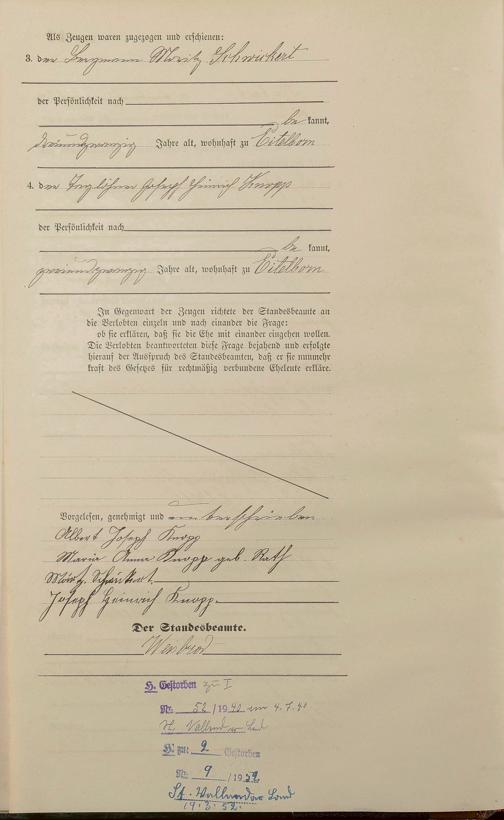 Als Zeugen waren zugezogen und erschienen:
3. der Bergmann Moritz Schwickert
der Persönlichkeit nach
be kannt,
dreiundzwanzig Jahre alt, wohnhaft zu Eitelborn
4. der Taglöhner Joseph Heinrich Knopp
der Persönlichkeit nach
be kannt,
zweiundzwanzig Jahre alt, wohnhaft zu Eitelborn
In Gegenwart der Zeugen richtete der Standesbeamte an
die Verlobten einzeln und nach einander die Frage:
ob sie erklären, daß sie die Ehe mit einander eingehen wollen.
Die Verlobten beantworteten diese Frage bejahend und erfolgte
hierauf der Ausspruch des Standesbeamten, daß er sie nunmehr
kraft des Gesetzes für rechtmäßig verbundene Eheleute erkläre.
Vorgelesen, genehmigt und unterschrieben
Albert Joseph Knopp
Maria Anna Knopp geb. Rath
Moritz Schwickert
Joseph Heinrich Knopp.
Der Standesbeamte.
Weisbrod
H. Gestorben zu I
Nr. 52 / 1940 am 4.7.40
St. Vallendar Land
H. zu: 2 Gestorben
Nr. 9 / 1952
St. Vallendar Land
19.3.52.